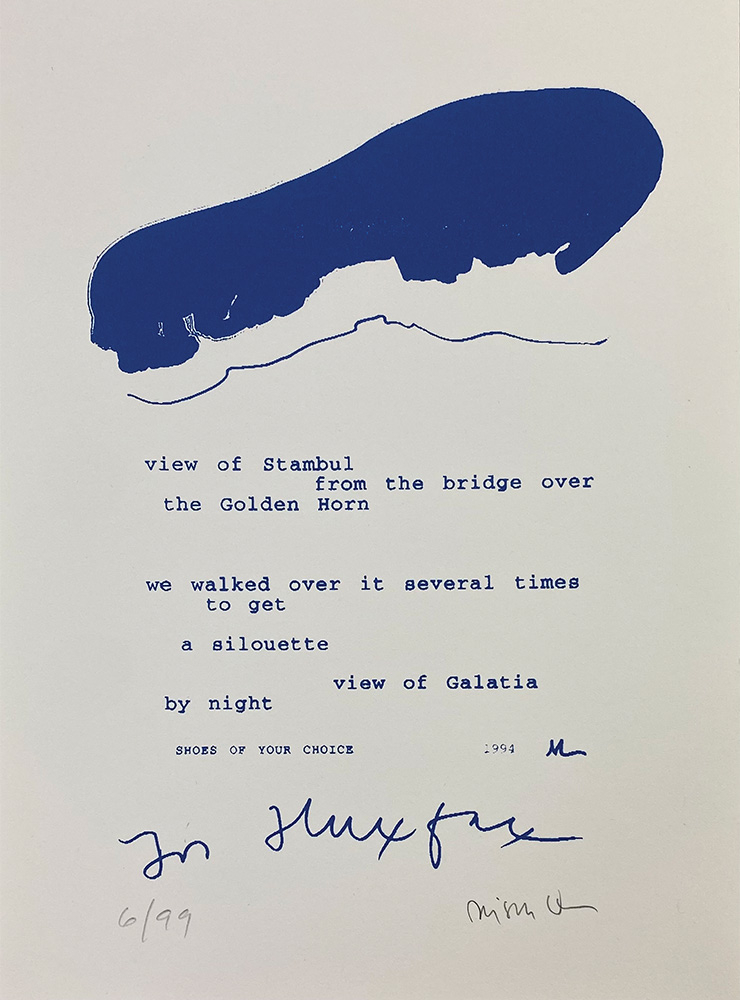 view of Stambul
from the bridge over
the Golden Horn
we walked over it several times
to get
a silouette
view of Galatia
by night
SHOES OF YOUR CHOICE 1994
for Fluxfax
6/99